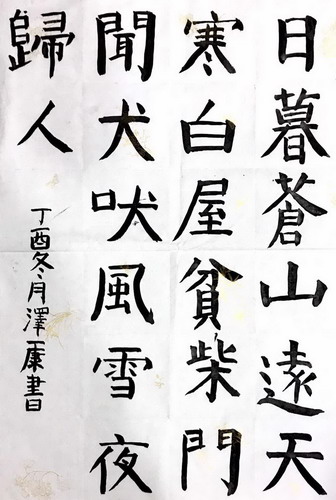 日暮蒼山遠天
寒白屋貧柴門
聞犬吠風雪夜
歸人
丁酉冬月澤廉書